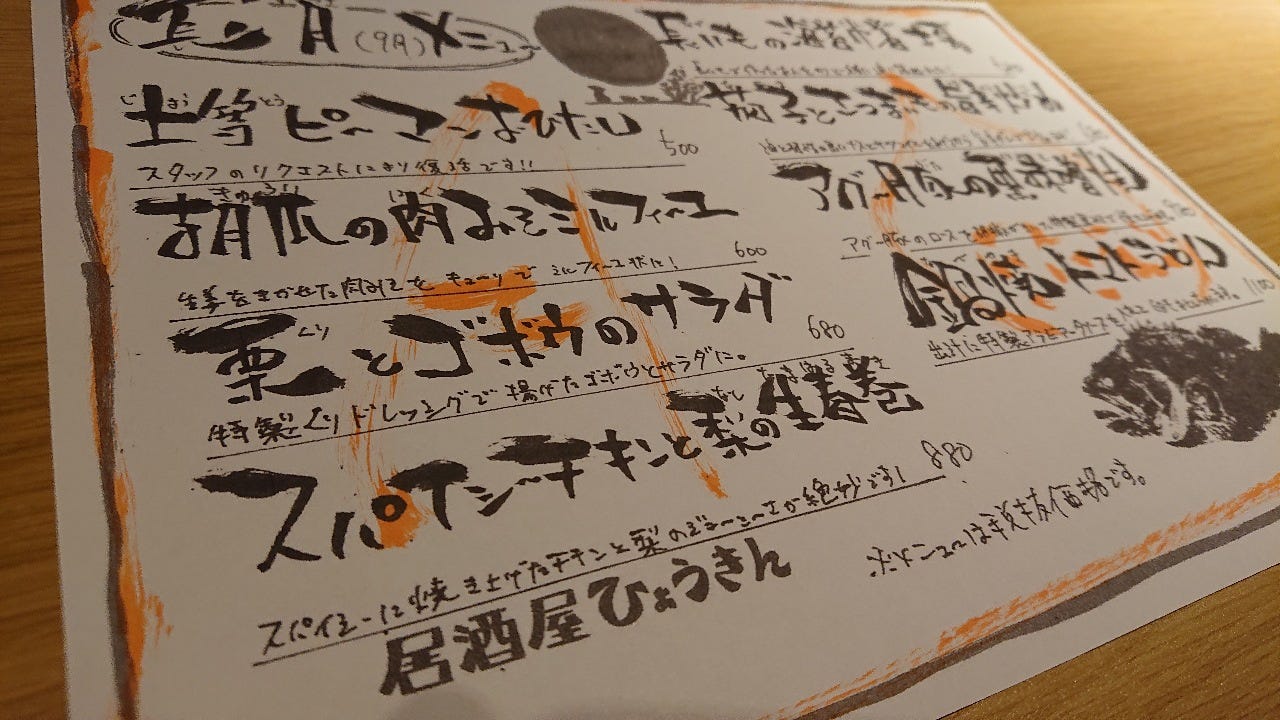 長月(9月)メニュー
じょうとう
上等ピーマンおひたし
500
スタッフのリクエストにより復活です!!
きゅうり にく
胡瓜の肉みそミルフィーユ
600
生姜をきかせた肉みそをキューリでミルフィーユ状に!
くり
栗とゴボウのサラダ
680
特製くりドレッシングで揚げたゴボウとサラダに。
なし なまはるまき
スパイシーチキンと梨の生春巻
880
スパイシーに焼き上げたチキンと梨のジューシーさが絶妙です!
居酒屋ひょうきん
長いもの
茄子とさつま
アグー豚の黒
アグー豚のロースを
鍋焼トマトうどん
1100
出汁に特製トマトソースを
メニューは税抜価格です。